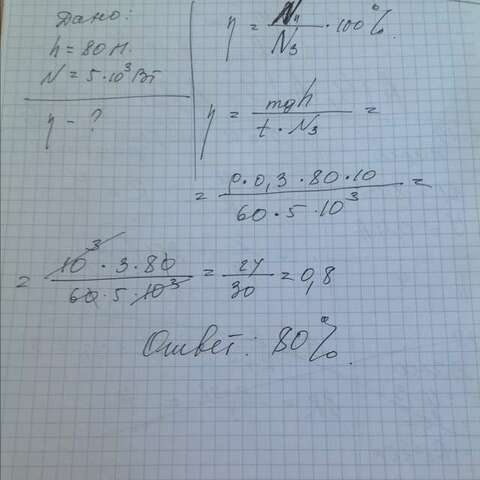 Дано:
h = 80 м.
N = 5·10³ Вт
η - ?
η = Nп / Nз · 100%
η = mgh / t · Nз =
= ρ · 0,3 · 80 · 10 / 60 · 5 · 10³ =
= 10³ · 3 · 80 / 60 · 5 · 10³ = 24 / 30 = 0,8
Ответ: 80%.